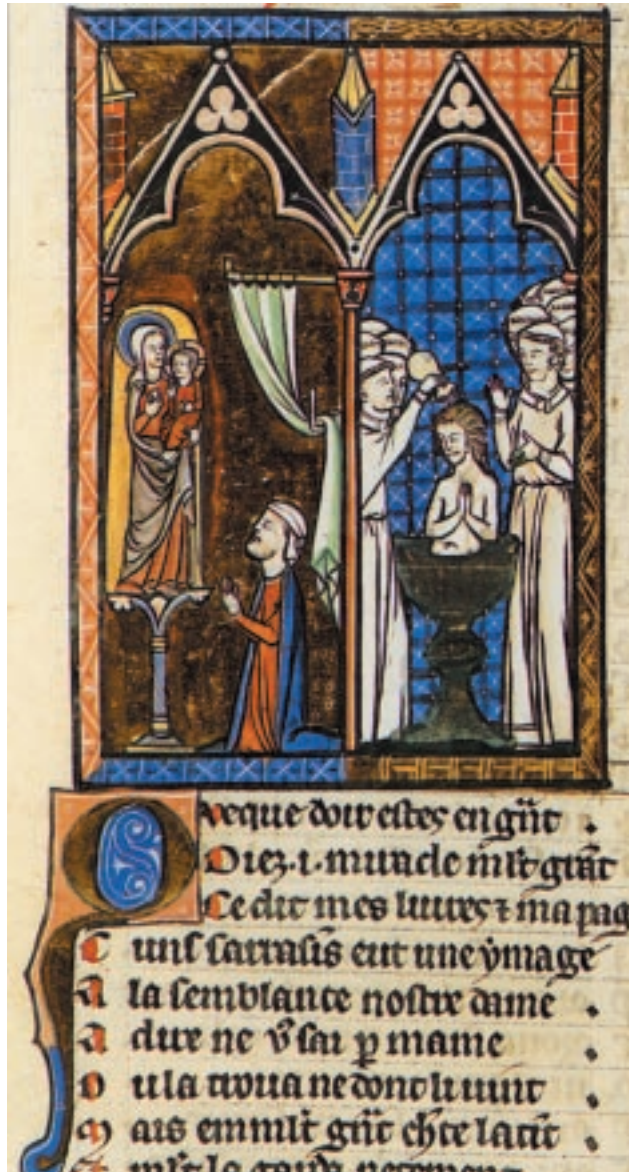 que doir estes en gñt .
Oiez .i. miracle mlt grant
Ce dit mes liures ⁊ ma pag
C uns sarrasis eut une ymage
A la semblance nostre dame .
A dire ne v᷒ sai ꝑ mame
O u la trouua ne dont li uint .
M ais en mlt gñt ch̾te la tint .
Et mlt la garda netemen